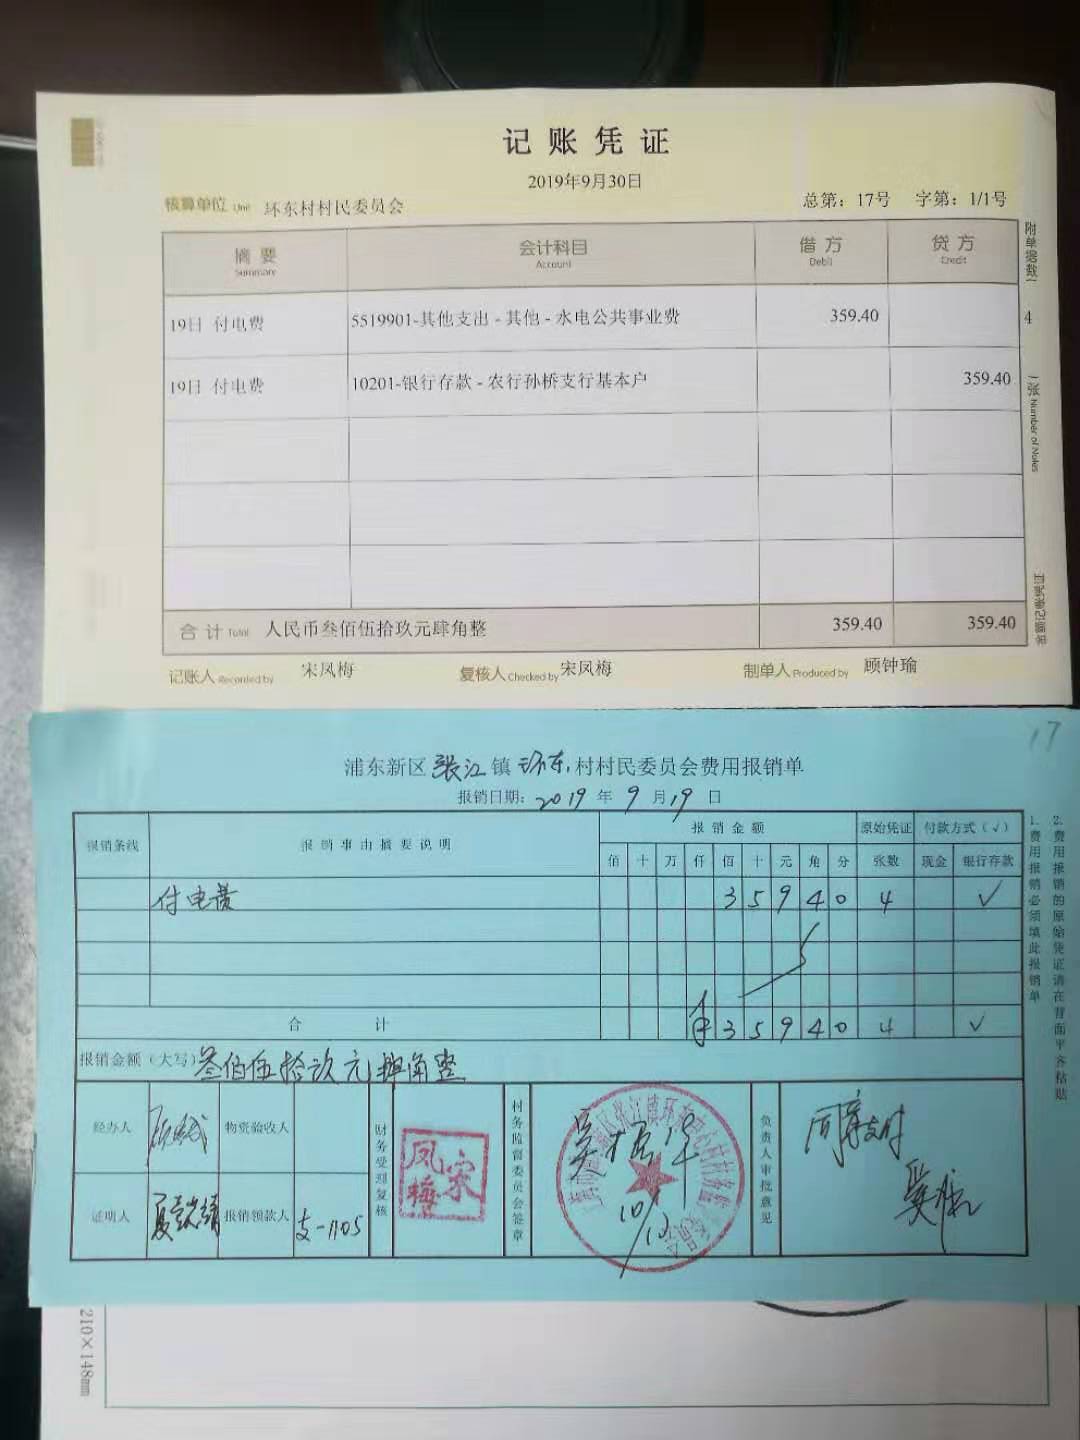 记账凭证
2019年9月30日
核算单位 Unit 环东村村民委员会
总第：17号 字第：1/1号
摘要 会计科目 借方 贷方
Summary Account Debit Credit
19日 付电费 5519901-其他支出 - 其他 - 水电公共事业费 359.40
19日 付电费 10201-银行存款 - 农行孙桥支行基本户 359.40
合计 Total 人民币叁佰伍拾玖元肆角整 359.40 359.40
记账人 Recorded by 宋凤梅 复核人 Checked by 宋凤梅 制单人 Produced by 顾钟瑜
附单据数 4 张 Number of Notes
17
浦东新区张江镇环东村村民委员会费用报销单
报销日期：2019年9月19日
报销条线 报销事由摘要说明 报销金额 原始凭证 付款方式（√）
佰 十 万 仟 佰 十 元 角 分 张数 现金 银行存款
付电费 3 5 9 4 0 4 √
合计 3 5 9 4 0 4 √
报销金额（大写）叁佰伍拾玖元肆角整
经办人 物资验收人
证明人 报销领款人 支-1105
财务受理复核
宋凤梅
村务监督委员会签章
10/12
负责人审批意见
同意支付
1.费用报销必须填此报销单
2.费用报销的原始凭证请在背面平齐粘贴
210×148mm